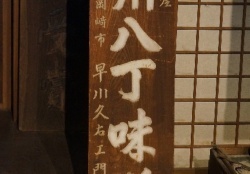 屋
八丁味
岡崎市 早川久右エ門